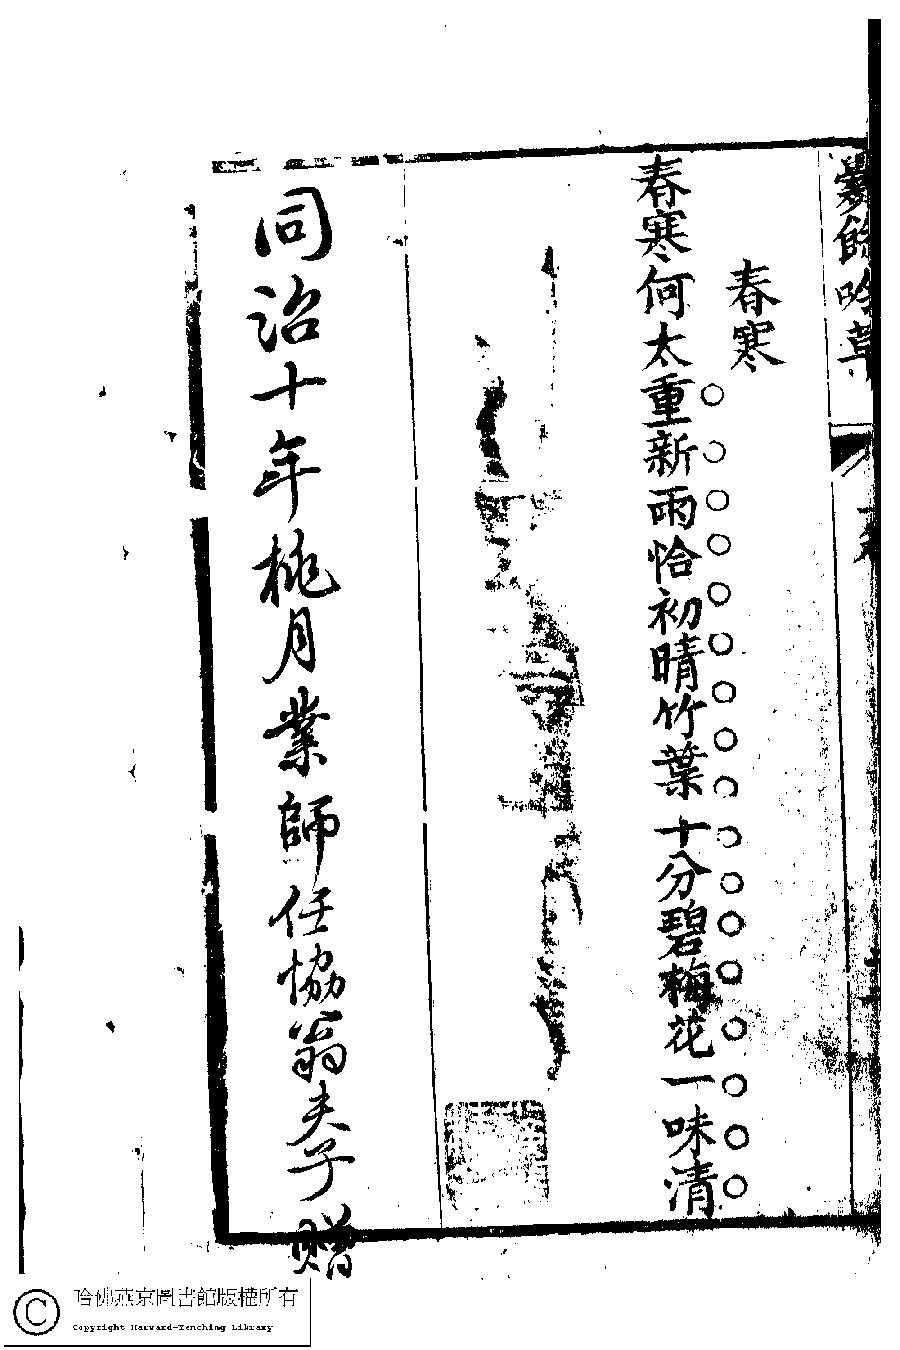 爨餘吟草
春寒
春寒何太重新雨恰初晴竹葉十分碧梅花一味清
同治十年桃月業師任協翁夫子贈
哈佛燕京圖書館版權所有
Copyright Harvard-Yenching Library